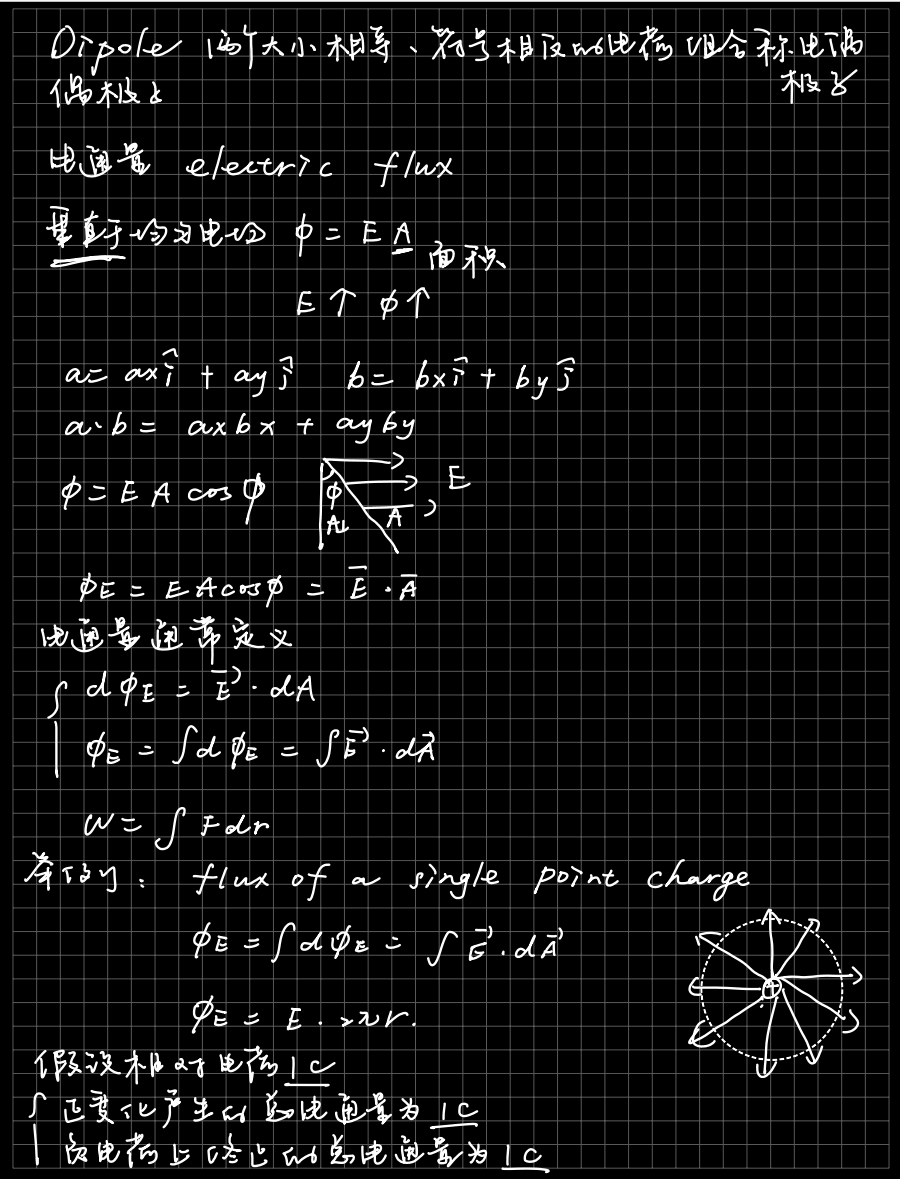 Dipole 两个大小相等、符号相反的电荷组合称电偶极子
偶极子
电通量 electric flux
垂直于均匀电场 ϕ = E A 面积
E ↑ ϕ ↑
a = ax î + ay ĵ b = bx î + by ĵ
a·b = axbx + ayby
ϕ = E A cos ϕ
ϕ
A⊥
A
E
ϕE = E A cosϕ = E · A
电通量通常定义
dϕE = E⃗ · dA
ϕE = ∫dϕE = ∫E⃗ · dA⃗
W = ∫ F dr
举例: flux of a single point charge
ϕE = ∫dϕE = ∫ E⃗ · dA⃗
ϕE = E · 2πr.
+
假设相对电荷 1C
正变化产生的总电通量为 1C
负电荷上终止的总电通量为 1C